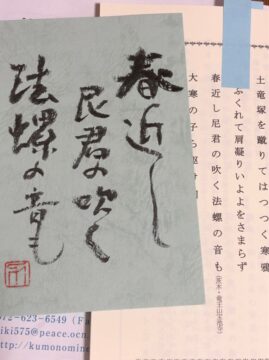 春近し
尼君の吹く
法螺の音も
土竜塚を蹴りてはつつく寒雅
ふくれて肩凝りいよよをさまらず
春近し尼君の吹く法螺の音も
大寒の子ら駆け
072-623-6549 (Fa
iki575@peace.ocn.
http://kumonomine